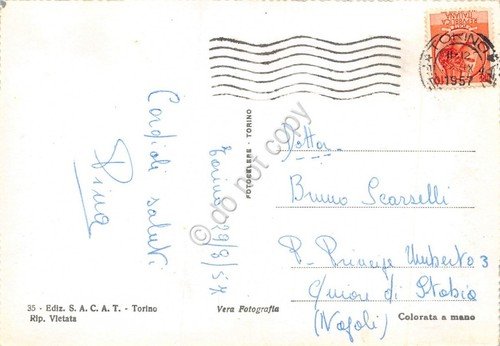 Cordiali saluti
Pina
Torino 29/8/57
35 - Ediz. S. A. C. A. T. - Torino
Rip. Vietata
Vera Fotografia
FOTOCELERE - TORINO
TORINO
1957
REPUBBLICA
ITALIANA
Ditta
Bruno Scarselli
P. Principe Umberto 3
di Stabia
(Napoli)
Colorata a mano
do not copy